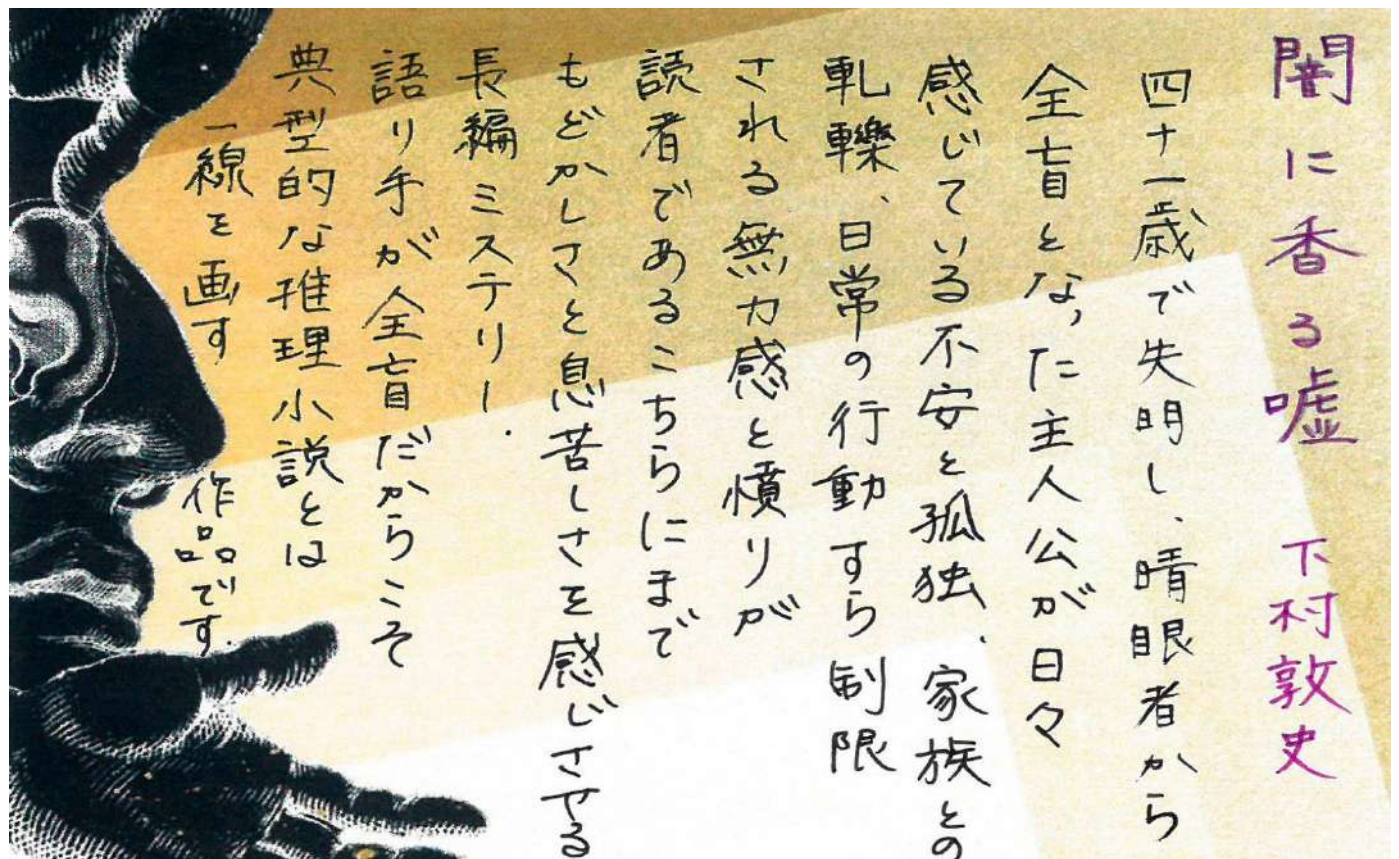 闇に香る嘘 下村敦史
四十一歳で失明し、晴眼者から
全盲となった主人公が日々
感じている不安と孤独、家族との
軋轢、日常の行動すら制限
される無力感と憤りが
読者であるこちらにまで
もどかしさと息苦しさを感じさせる
長編ミステリー.
語り手が全盲だからこそ
典型的な推理小説とは
一線を画す 作品です.